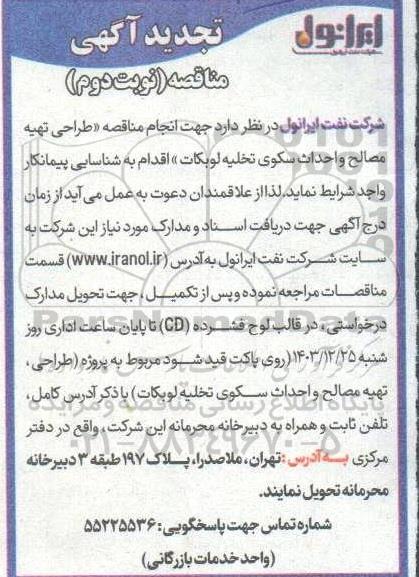 ایرانول
شرکت نفت ایرانول
تجدید آگهی
مناقصه (نوبت دوم)
شرکت نفت ایرانول در نظر دارد جهت انجام مناقصه «طراحی تهیه
مصالح و احداث سکوی تخلیه لوبکات» اقدام به شناسایی پیمانکار
واجد شرایط نماید. لذا از علاقمندان دعوت به عمل می آید از زمان
درج آگهی جهت دریافت اسناد و مدارک مورد نیاز این شرکت به
سایت شرکت نفت ایرانول به آدرس (www.iranol.ir) قسمت
مناقصات مراجعه نموده و پس از تکمیل، جهت تحویل مدارک
درخواستی، در قالب لوح فشرده (CD) تا پایان ساعت اداری روز
شنبه ۱۴۰۳/۱۲/۲۵ (روی پاکت قید شود مربوط به پروژه (طراحی،
تهیه مصالح و احداث سکوی تخلیه لوبکات) با ذکر آدرس کامل،
تلفن ثابت و همراه به دبیرخانه محرمانه این شرکت، واقع در دفتر
مرکزی به آدرس: تهران، ملاصدرا، پلاک ۱۹۷ طبقه ۳ دبیرخانه
محرمانه تحویل نمایند.
شماره تماس جهت پاسخگویی: ۵۵۲۲۵۵۳۶
(واحد خدمات بازرگانی)
ParsNamadData
پایگاه اطلاع رسانی مناقصه و مزایده
۰۲۱-۸۸۳۴۹۶۷۰-۵